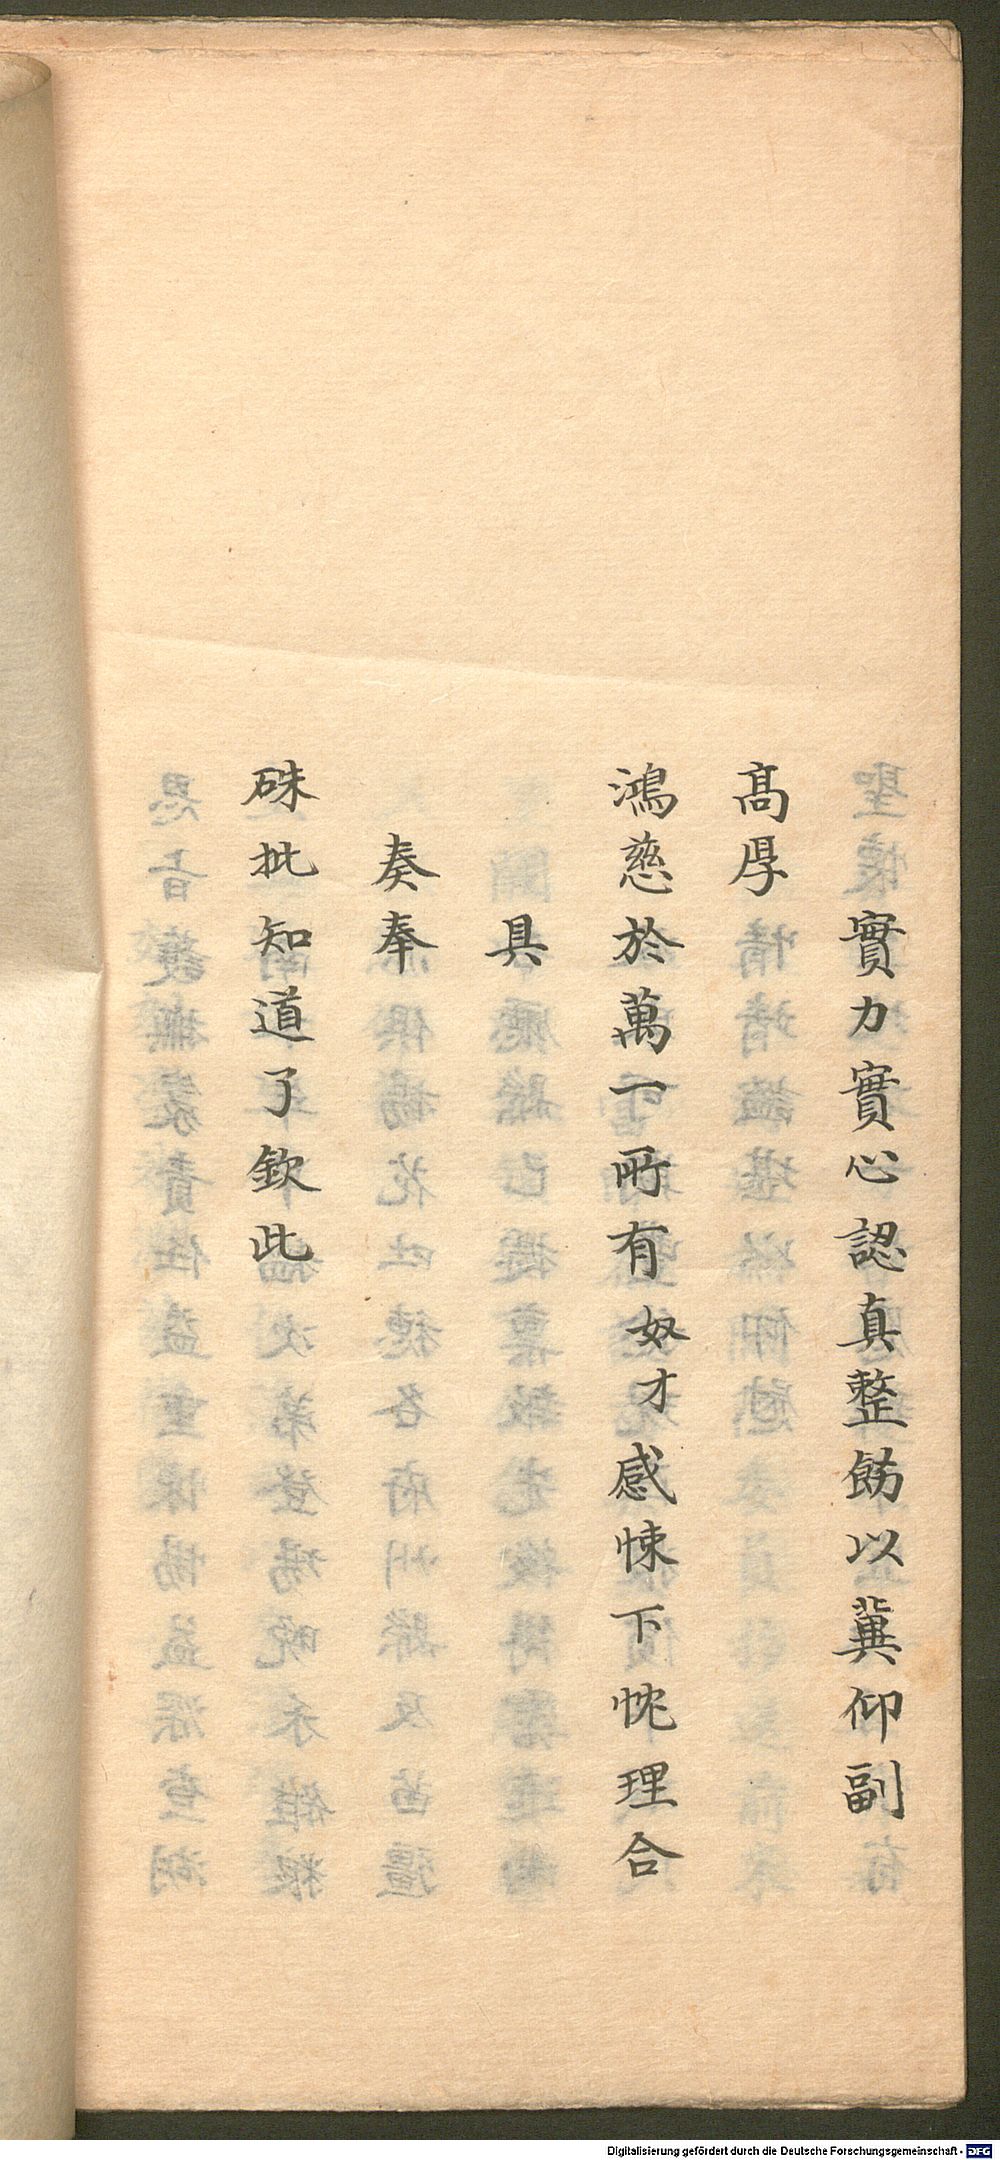 實力實心認真整飭以冀仰副
高厚
鴻慈於萬一所有奴才感悚下忱理合
具
奏奉
硃批知道了欽此
Digitalisierung gefördert durch die Deutsche Forschungsgemeinschaft - DFG